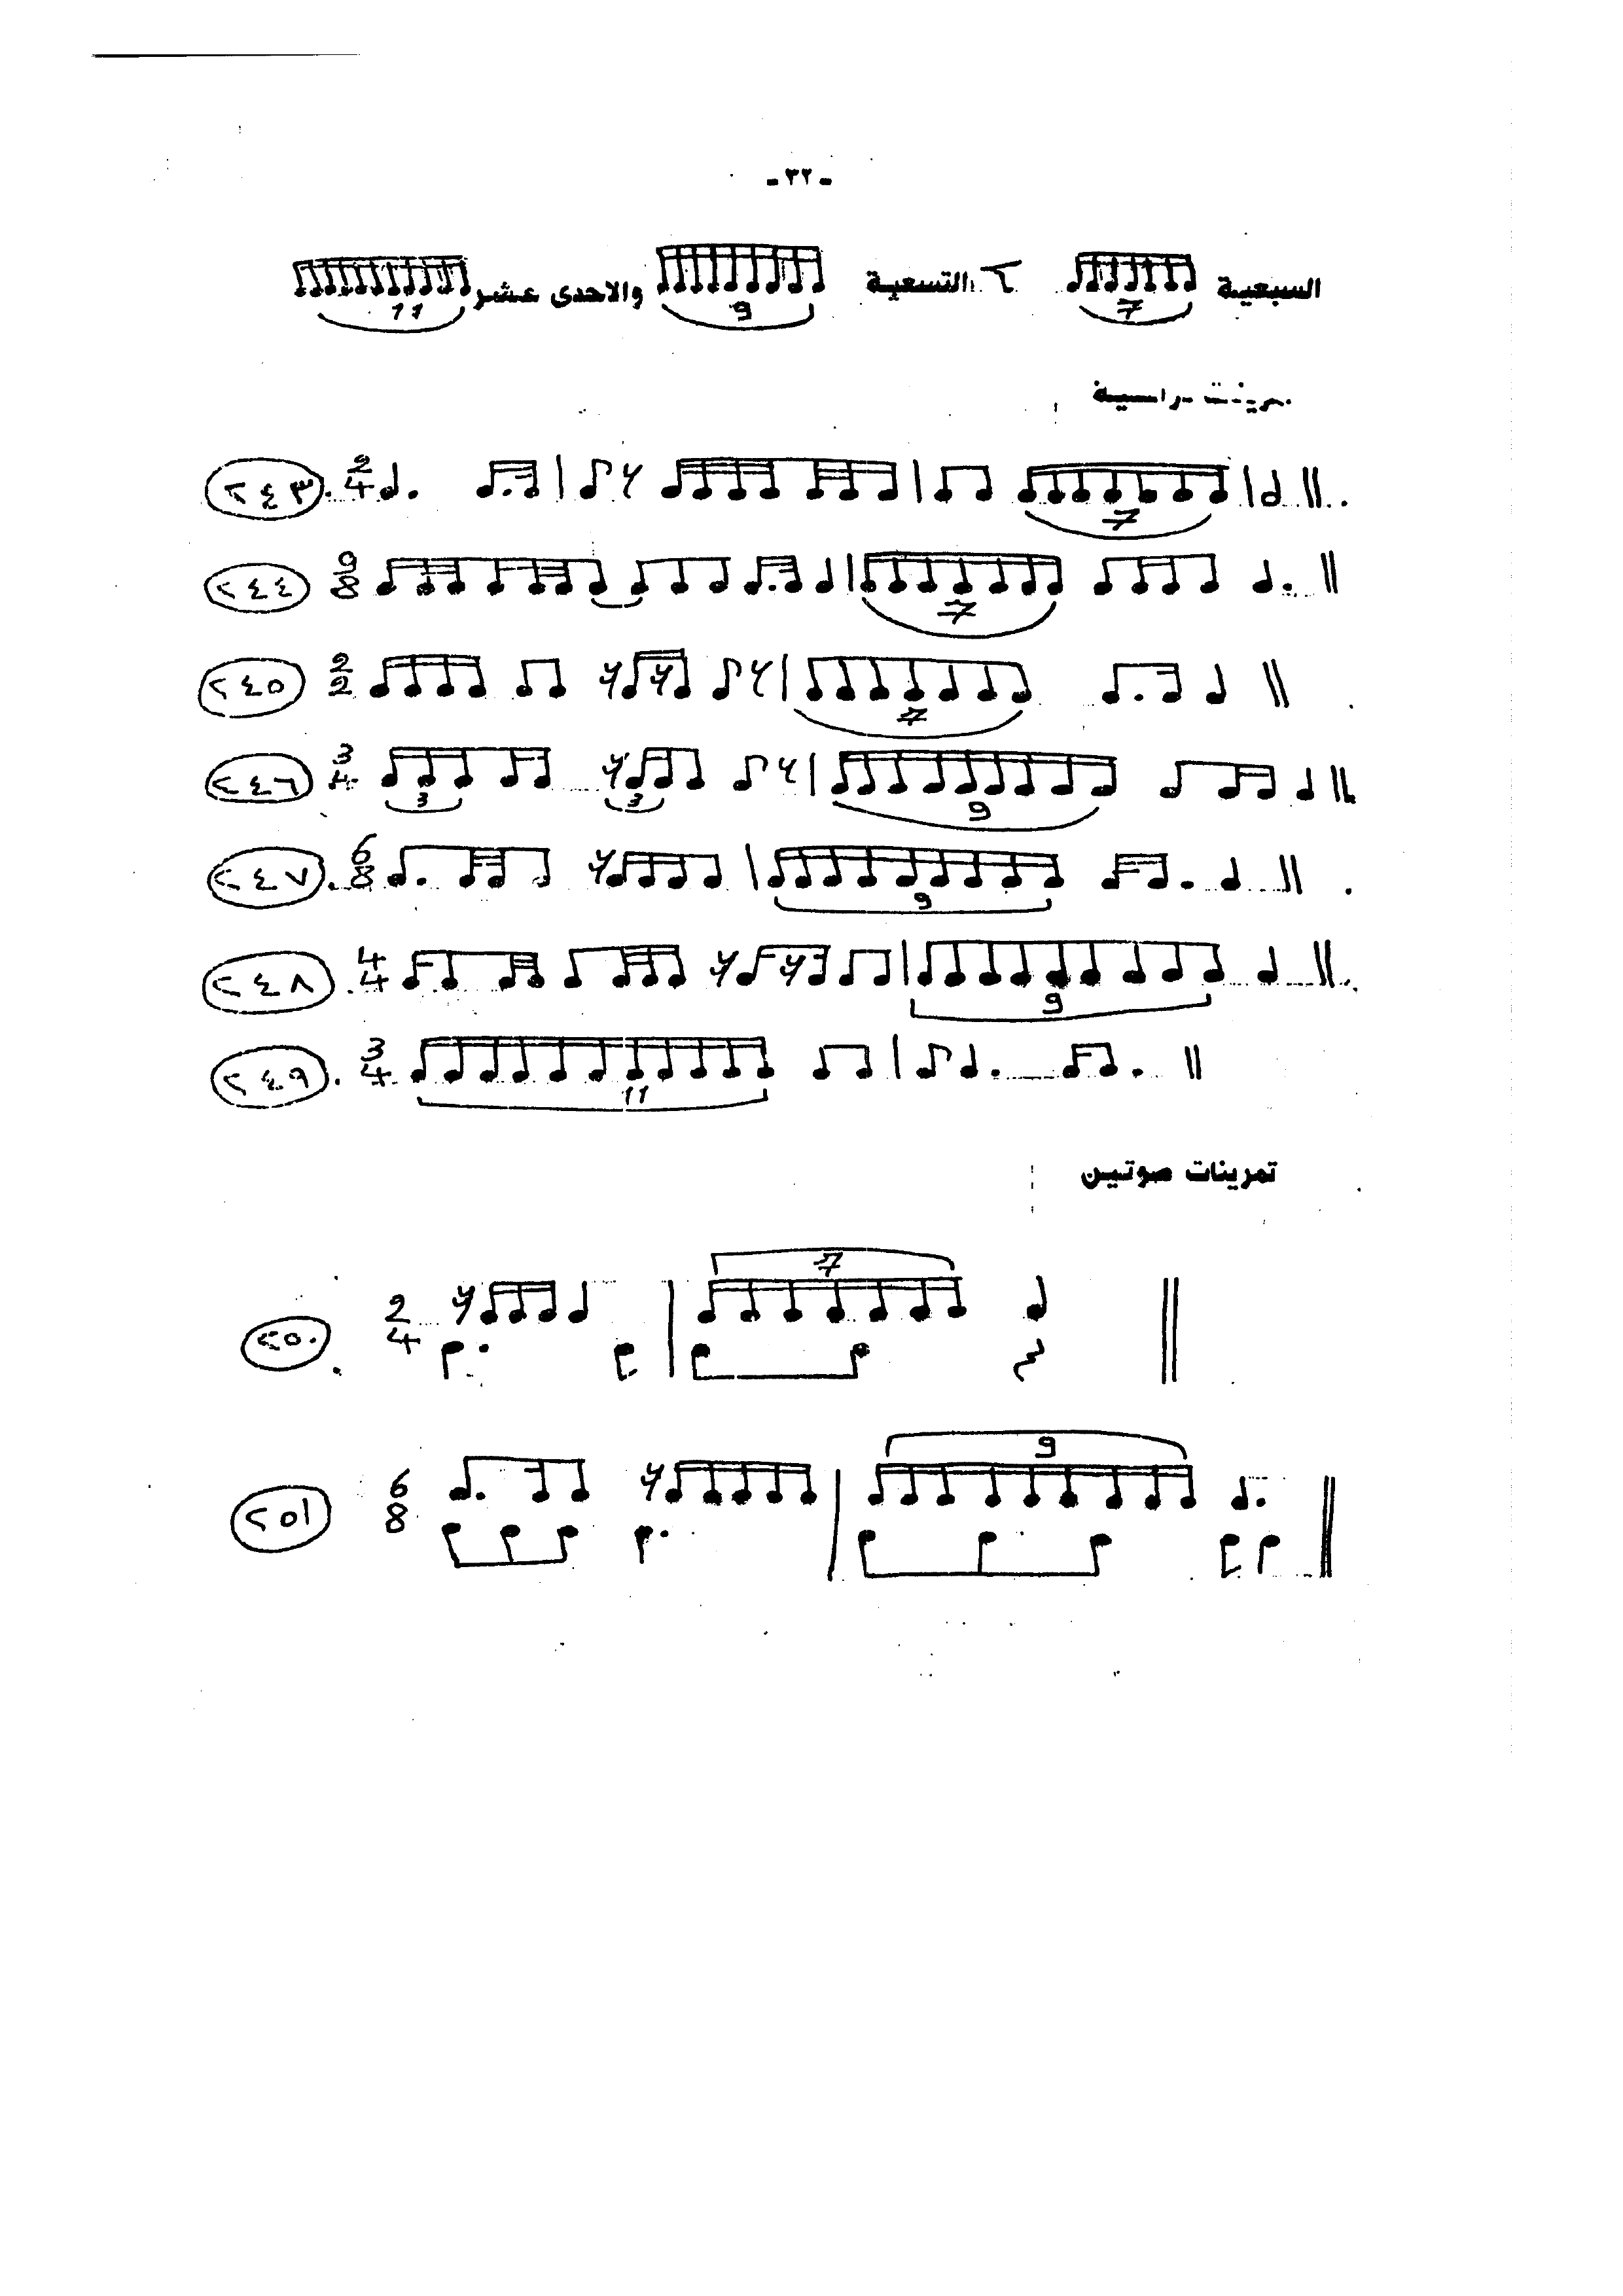 - ٣٢ -
السبعية 7 التسعية 9 والاحدى عشر 11
٢٤٣ 2 4 7
٢٤٤ 9 8 7
٢٤٥ 2 2 7
٢٤٦ 3 4 3 3 9
٢٤٧ 6 8 9
٢٤٨ 4 4 9
٢٤٩ 3 4 11
تمرينات صوتين
٢٥٠ 2 4 7
٢٥١ 6 8 9